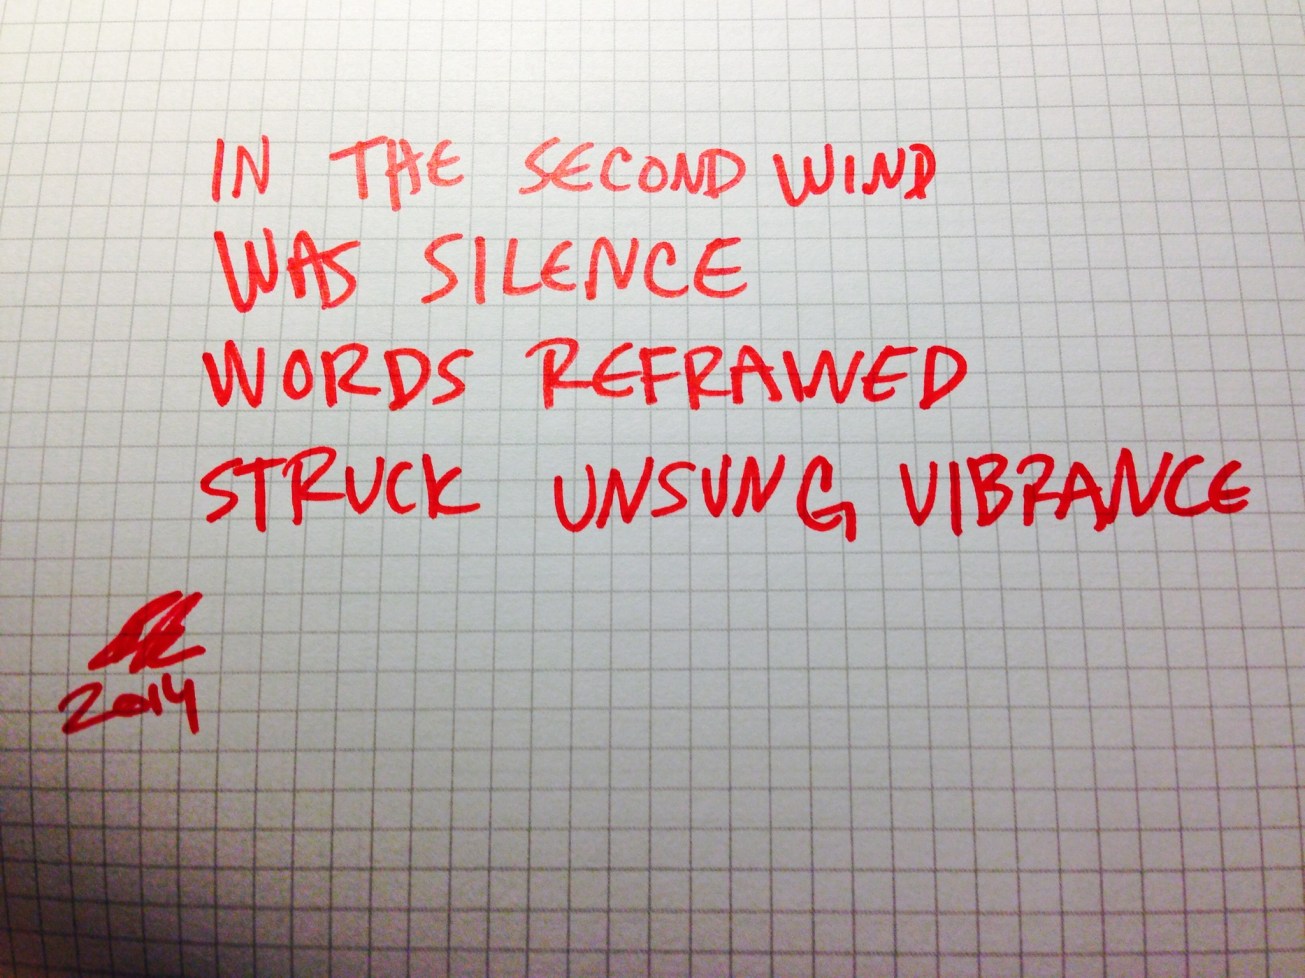 IN THE SECOND WIND
WAS SILENCE
WORDS REFRAINED
STRUCK UNSUNG VIBRANCE
2014